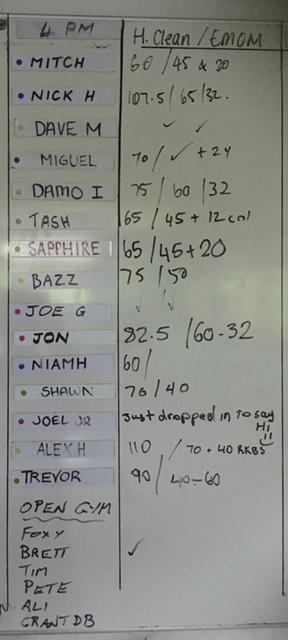 4 PM H. Clean / EMOM
MITCH 60 / 45 & 20
NICK H 107.5 / 65 / 32.
DAVE M ✓ ✓
MIGUEL 70 / ✓ + 24
DAMO I 75 / 60 / 32
TASH 65 / 45 + 12 cal
SAPPHIRE 65 / 45 + 20
BAZZ 75 / 50
JOE G ✓ ✓
JON 82.5 / 60 - 32
NIAMH 60 /
SHAWN 70 / 40
JOEL JR Just dropped in to say
Hi
ALEX H 110 / 70 + 40 RKBS
TREVOR 90 / 40-60
OPEN GYM
FOXY
BRETT ✓
TIM
PETE
ALI
GRANT DB